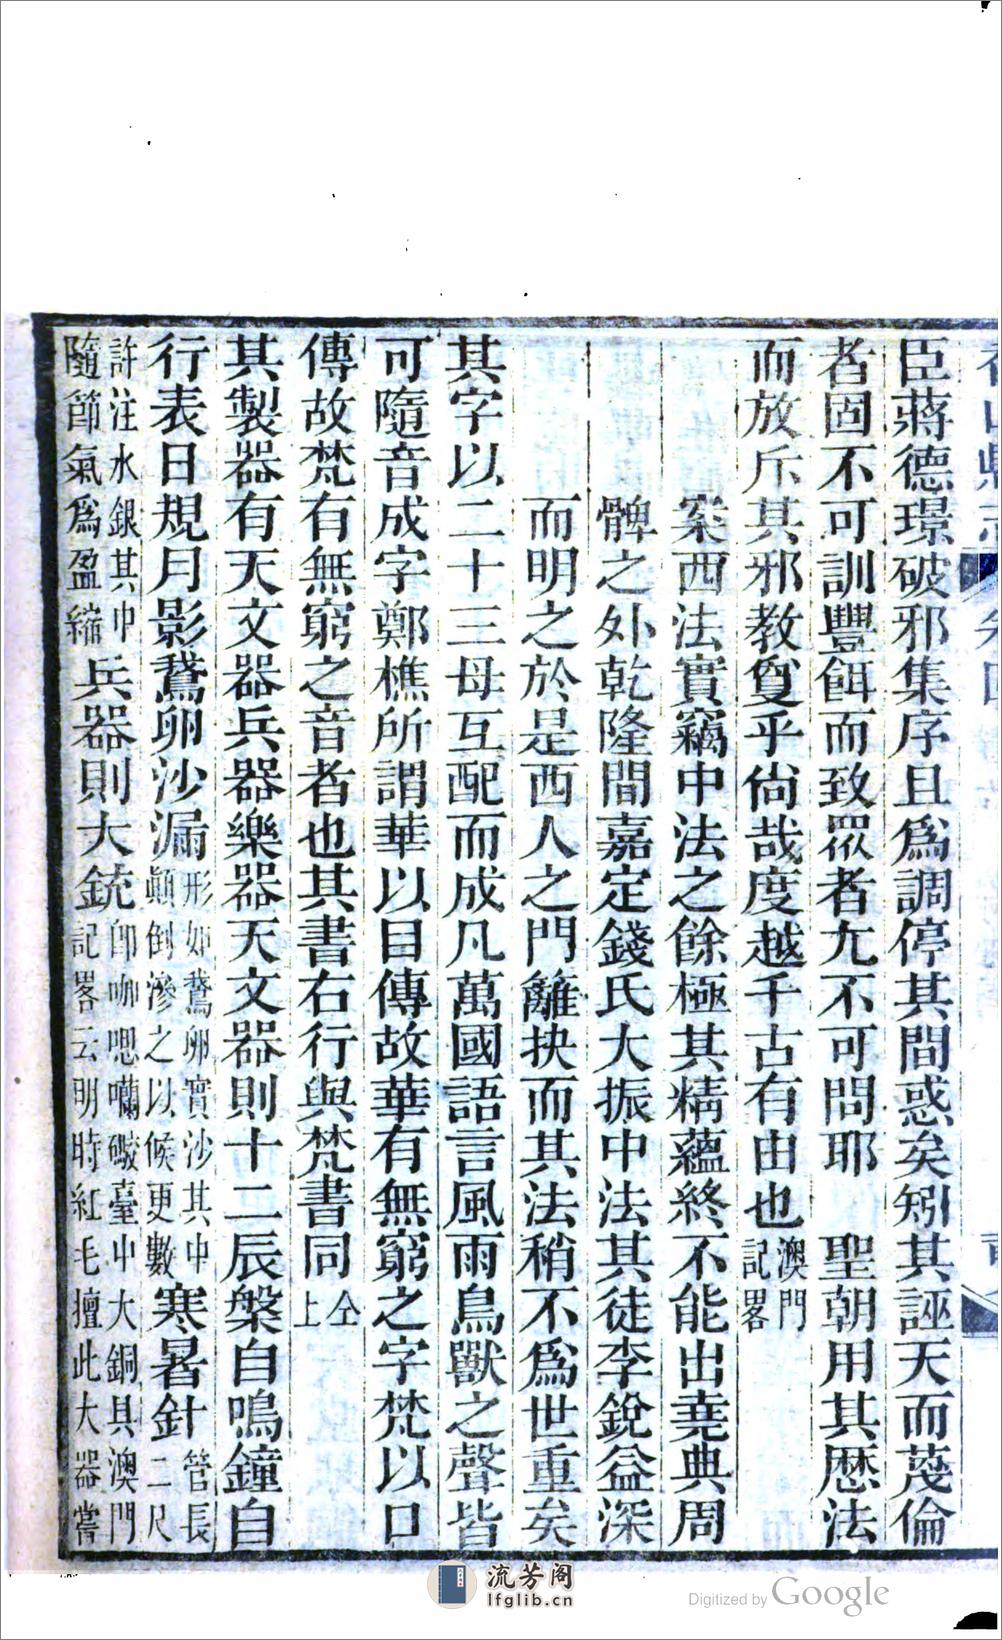 臣蔣德璟破邪集序且爲調停其間惑矣矧其誣天而蔑倫
者固不可訓豐餌而致眾者尢不可問耶　聖朝用其歴法
而放斥其邪教敻乎尙哉度越千古有由也澳門記畧
案西法實竊中法之餘極其精蘊終不能出堯典周
髀之外乾隆間嘉定錢氏大振中法其徒李銳益深
而明之於是西人之門籬抉而其法稍不爲世重矣
其字以二十三母互配而成凡萬國語言風雨鳥獸之聲皆
可隨音成字鄭樵所謂華以目傳故華有無窮之字梵以口
傳故梵有無窮之音者也其書右行與梵書同仝上
其製器有天文器兵器樂器天文器則十二辰槃自鳴鐘自
行表日規月影鵞卵沙漏形如鵞卵實沙其中顚倒滲之以候更數寒暑針管長二尺
許注水銀其中隨節氣爲盈縮兵器則大銃卽咖呬囒礮臺中大銅具澳門記畧云明時紅毛擅此大器嘗
流芳阁
lfglib.cn
Digitized by Google